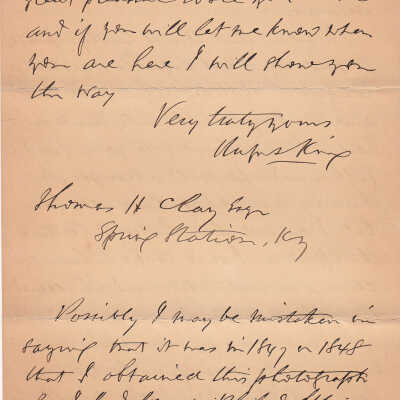 and if you will let me know when
you are here I will show you
the way
Very truly yours
Rufus King
Thomas H Clay Esqr
Spring Station, Ky
Possibly I may be mistaken in
saying that it was in 1847 or 1848
that I obtained this photograph